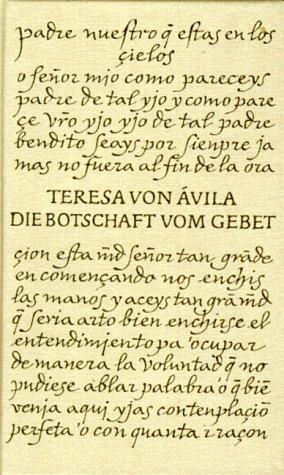 padre nuestro q̃ estas en los
çielos
o señor mio como pareceys
padre de tal yjo y como pare
çe vr̃o yjo yjo de tal padre
bendito seays por sienpre ja
mas no fuera al fin de la ora
TERESA VON ÁVILA
DIE BOTSCHAFT VOM GEBET
çion esta mr̃d señor tan grãde
en començando nos enchis
las manos y aceys tan grã mr̃d
q̃ seria arto bien enchirse el
entendimiento pa ocupar
de manera la voluntad q̃ no
pudiese ablar palabra o q̃ biẽ
venja aqui yjas contenplaciõ
perfeta o con quanta rraçon